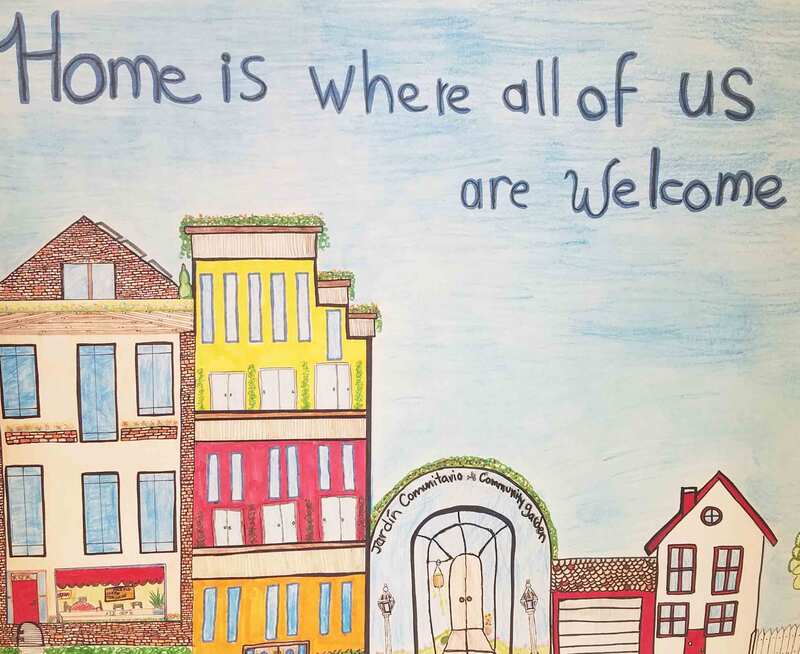 Home is where all of us
are Welcome
Jardín Comunitario Community garden